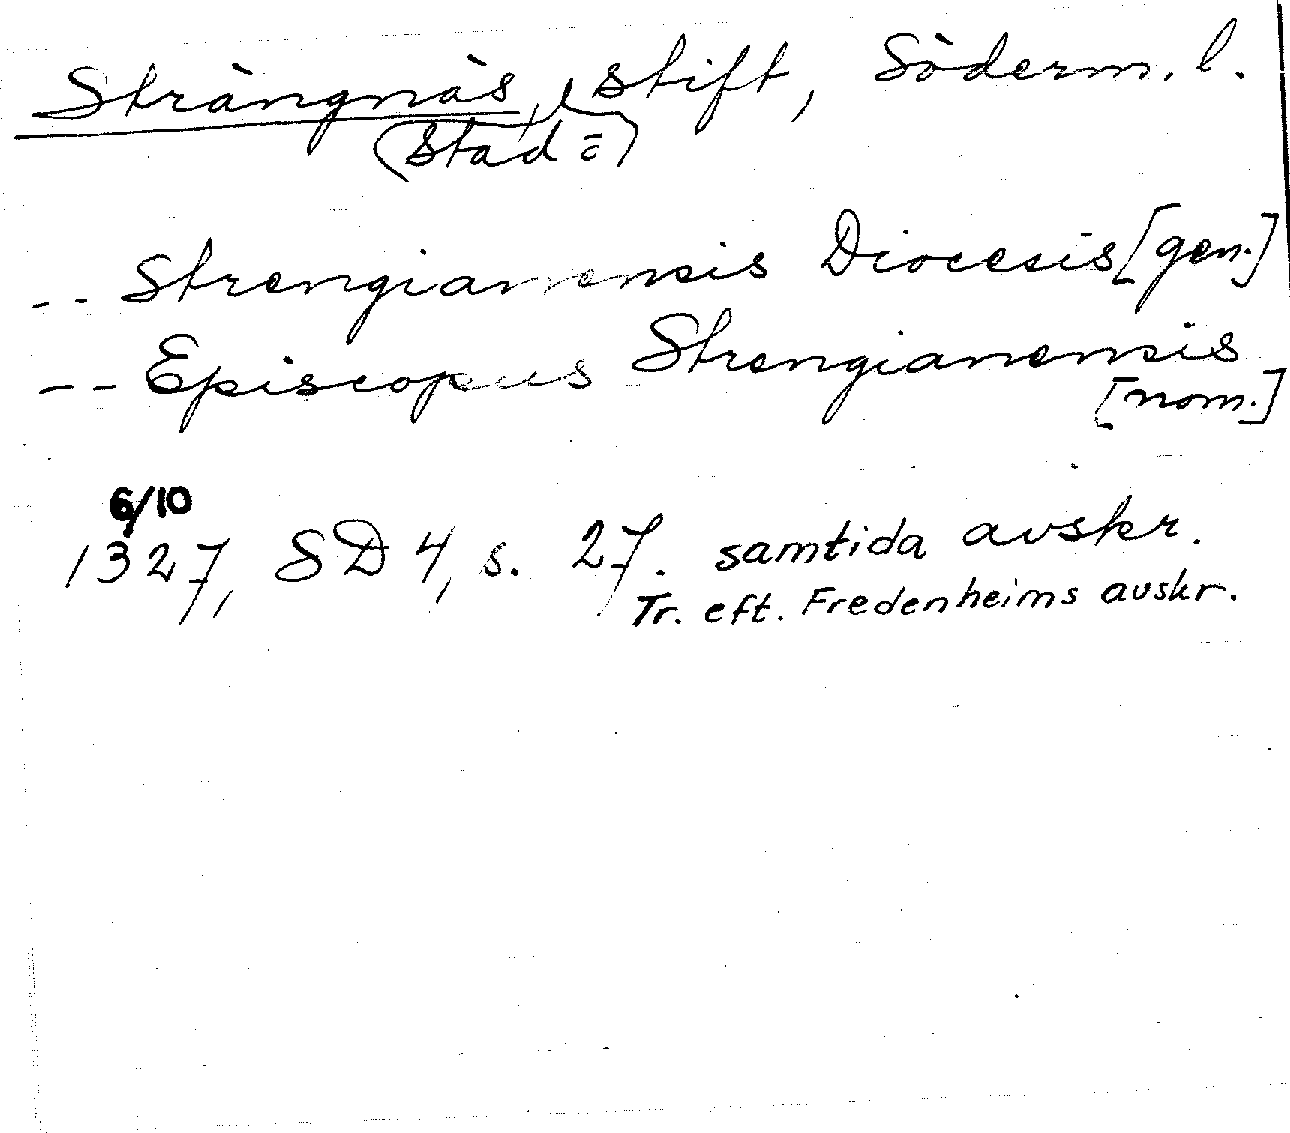 Strängnäs, stift, Söderm. l.
(stad =)
-- Strengianensis Diocesis [gen.]
-- Episcopus Strengianensis
[nom.]
6/10
1327, SD 4, s. 27. samtida avskr.
Tr. eft. Fredenheims avskr.